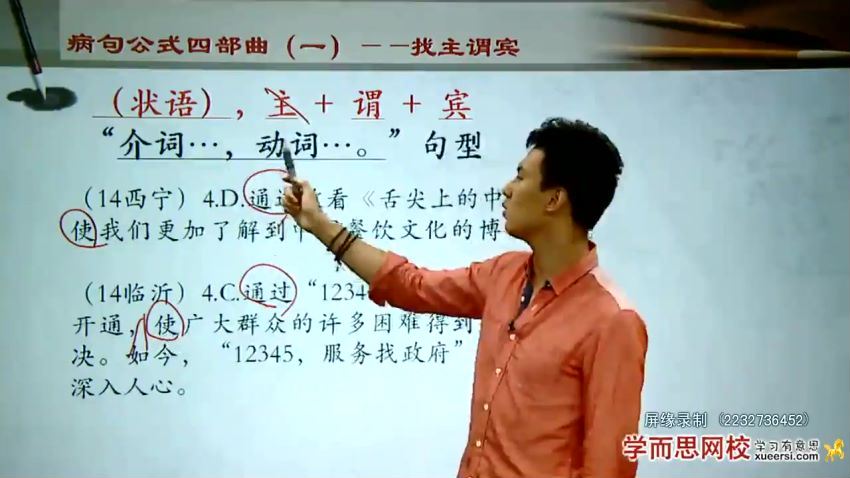 病句公式四部曲（一）－－找主谓宾
（状语），主＋谓＋宾
“介词…，动词…。”句型
（14西宁）4.D.通过 看《舌尖上的中
使我们更加了解到中 餐饮文化的博
（14临沂）4.C.通过“1234
开通，使广大群众的许多困难得到
决。如今，“12345，服务找政府”
深入人心。
屏缘录制 (2232736452)
学而思网校 学习有意思
xueersi.com